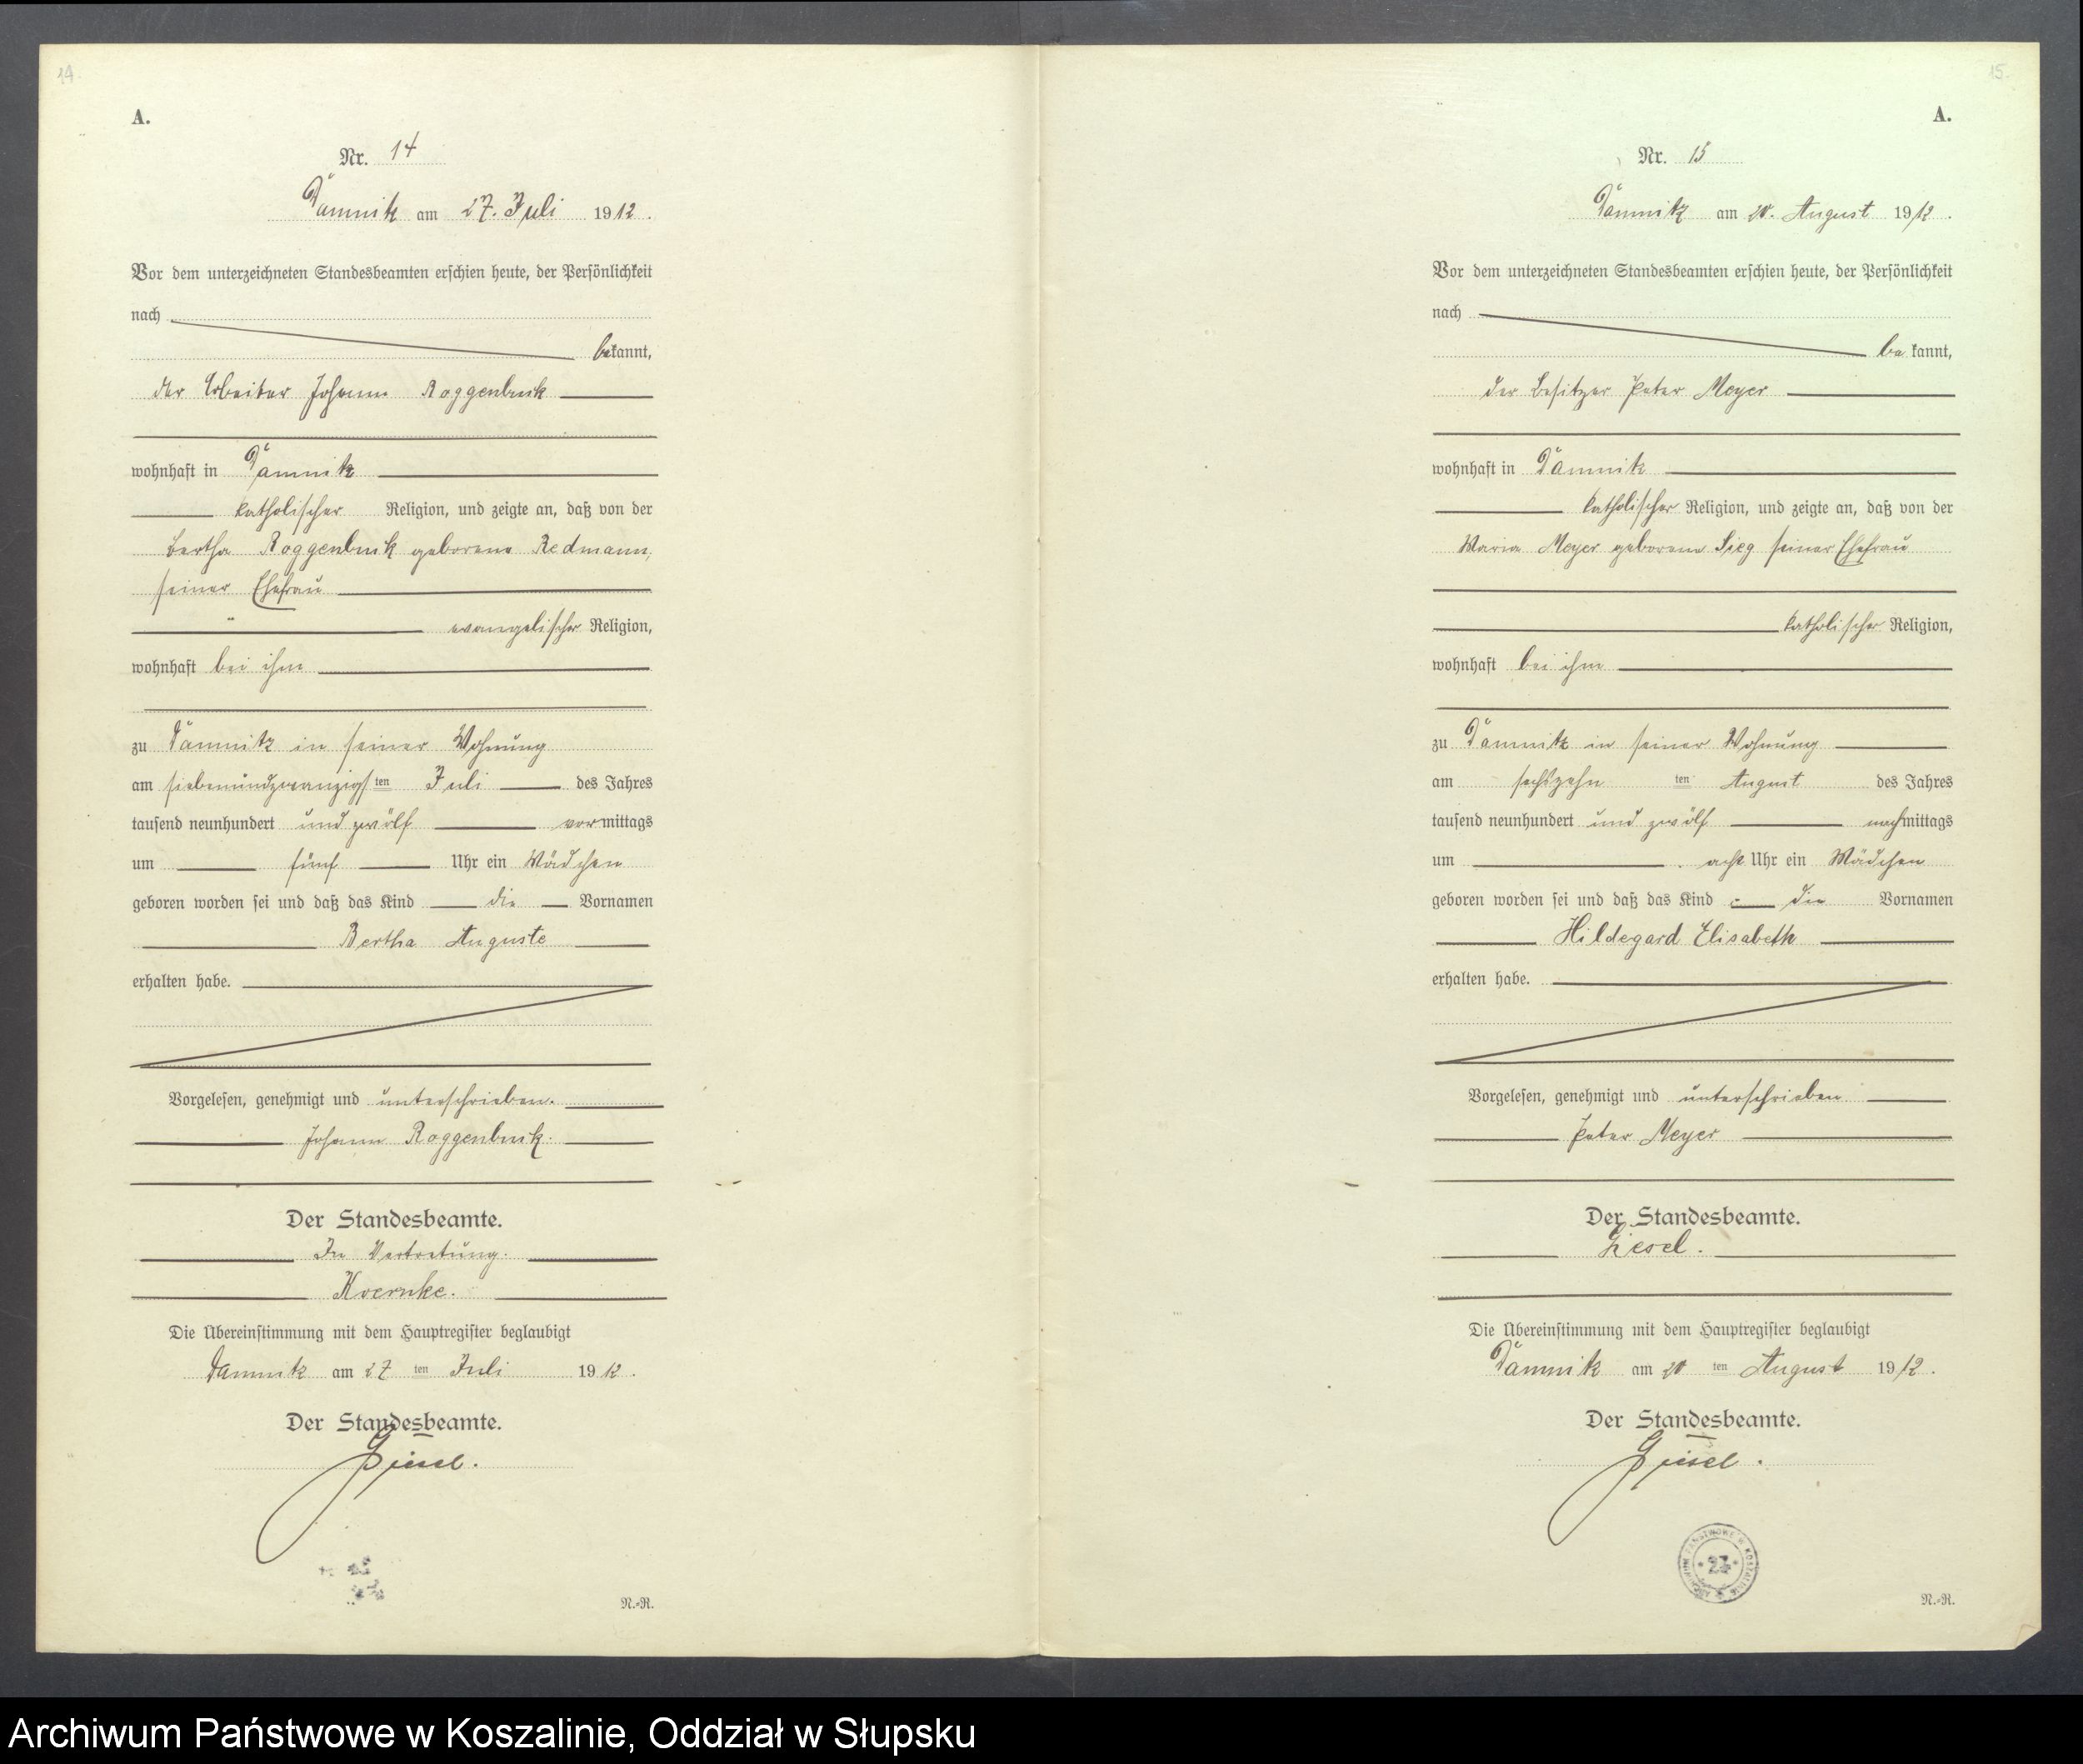 14.
A.
Nr. 14
Damnitz am 27. Juli 1912.
Vor dem unterzeichneten Standesbeamten erschien heute, der Persönlichkeit
nach
bekannt,
der Arbeiter Johann Roggenbuk
wohnhaft in Damnitz
katholischer Religion, und zeigte an, daß von der
Bertha Roggenbuk geborene Redmann,
seiner Ehefrau
evangelischer Religion,
wohnhaft bei ihm
zu Damnitz in seiner Wohnung
am siebenundzwanzigsten Juli des Jahres
tausend neunhundert und zwölf vormittags
um fünf Uhr ein Mädchen
geboren worden sei und daß das Kind die Vornamen
Bertha Auguste
erhalten habe.
Vorgelesen, genehmigt und unterschrieben.
Johann Roggenbuk.
Der Standesbeamte.
In Vertretung.
Koernke.
Die Übereinstimmung mit dem Hauptregister beglaubigt
Damnitz am 27 ten Juli 1912.
Der Standesbeamte.
Giesel.
N.-R.
15.
A.
Nr. 15
Damnitz am 20. August 1912.
Vor dem unterzeichneten Standesbeamten erschien heute, der Persönlichkeit
nach
be kannt,
der Besitzer Peter Meyer
wohnhaft in Damnitz
katholischer Religion, und zeigte an, daß von der
Maria Meyer geborene Sieg seiner Ehefrau
katholischer Religion,
wohnhaft bei ihm
zu Damnitz in seiner Wohnung
am sechszehn ten August des Jahres
tausend neunhundert und zwölf nachmittags
um acht Uhr ein Mädchen
geboren worden sei und daß das Kind die Vornamen
Hildegard Elisabeth
erhalten habe.
Vorgelesen, genehmigt und unterschrieben
Peter Meyer
Der Standesbeamte.
Giesel.
Die Übereinstimmung mit dem Hauptregister beglaubigt
Damnitz am 20 ten August 1912.
Der Standesbeamte.
Giesel.
N.-R.
Archiwum Państwowe w Koszalinie, Oddział w Słupsku